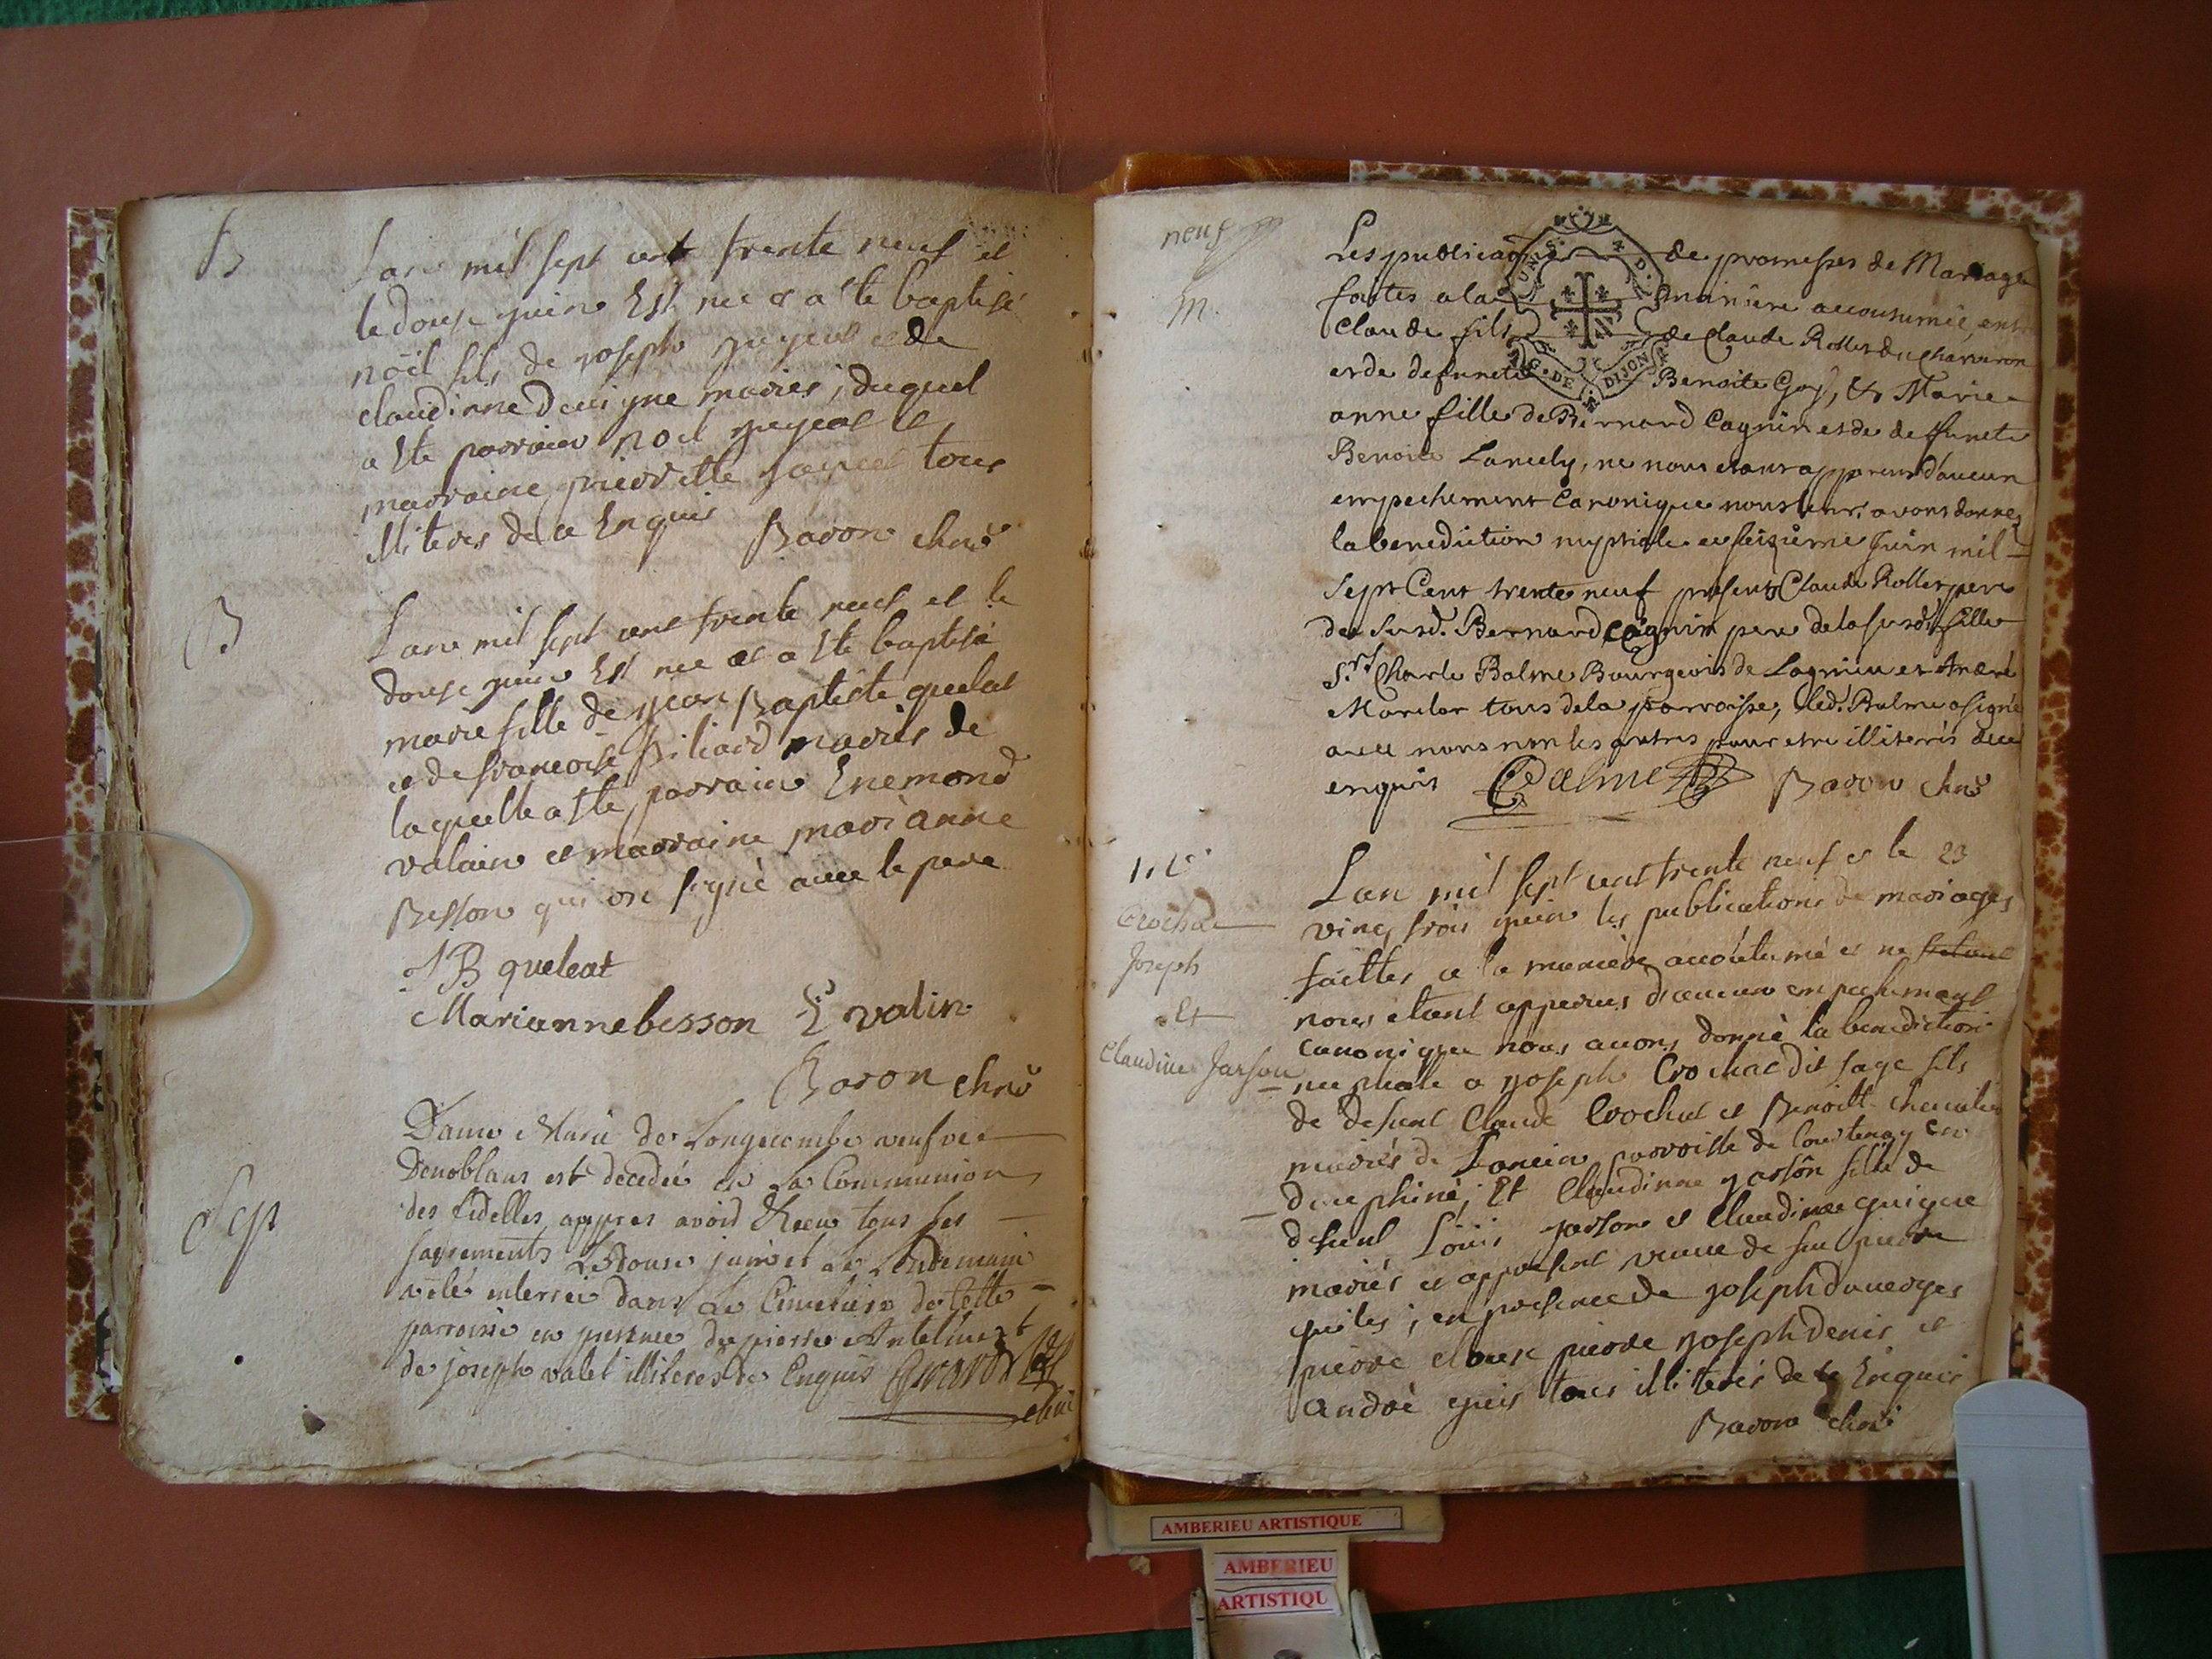 B
Lan mil sept cent trente neuf et
le douse juin Est nee et a ste baptisé
noël fils de joseph et de
claudinne mariés; duquel
a ste parrain noel et
marraine pierrette tous
illiteres de ce Enquis Baron chne
B
Lan mil sept cent trente neuf et le
douse juin Est nee et a ste baptisé
marie fille de jean Baptiste quelat
et de francoise Biliard mariés de
laquelle a ste parrain Enemond
valain et marraine marianne
Besson qui on signé avec le pere
JB queleat
Marianne besson E valin
Baron chne
Sep
Dame Marie de Longecombe veufve
Denoblans est decedeé en La Communion
des fidelles appres avoir Receu tous ses
sacrements Ledouse juin et Le Lendemain
a été enterreé dans Le Cimetiere de Cette
parroisse en presence de pierre Antelme et
de joseph valet illiterés de Enquis
neuf
M.
Les publications de promesses de Mariage
faites a la maniere accoutumée, entre
Claude fils de Claude Rollet du Charveron
et de defuncte Benoite Goy, & Marie
anne fille de Bernard Cagnin et de deffuncte
Benoite Lancely, ne nous etant apparus d'aucun
empechement Canonique nous leur avons donné
la benediction nuptiale ce seizieme Juin mil
Sept Cent trente neuf presents Claude Rollet pere
du susd. Bernard Cagnin pere de la susd. fille
Sr. Charle Balme Bourgeois de Lagnieu et André
tous de la parroisse, led. Balme a signé
avec nous non les autres pour etre illiterés de ce
enquis Balme Baron chne
M
Crochat
Joseph
Et
Claudine Jarson
Lan mil sept cent trente neuf et le 23
vingt trois juin les publications de mariages
faittes a la maniere accoutumé et ne
nous etant apperus d'aucun empechement
canonique nous avons donné la benediction
nuptiale a joseph Crochat dit sage fils
de defunt Claude Crochat et Benoitte chevalier
mariés de Lancin parroisse de Courtenay en
dauphiné; Et Claudinne jarson fille de
defunt Louis jarson et Claudinne guigue
mariés et apresent veuve de feu pierre
quiles; en presence de joseph
pierre pierre joseph denis et
andré tous illiterés de ce Enquis
Baron chne
AMBERIEU ARTISTIQUE
AMBERIEU
ARTISTIQU